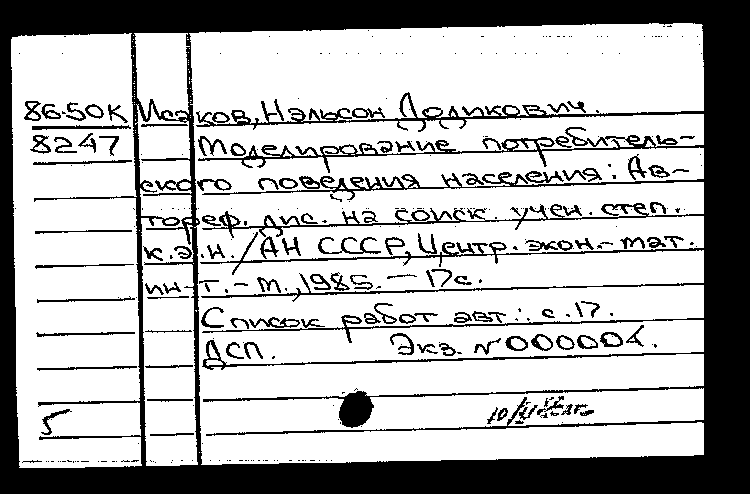 86-50К Исаков, Нэльсон Доликович.
8247 Моделирование потребитель-
ского поведения населения: Ав-
тореф. дис. на соиск. учен. степ.
к.э.н. / АН СССР, Центр. экон.-мат.
ин-т. - М., 1985. - 17с.
Список работ авт.: с.17.
ДСП. Экз. №000004.
5